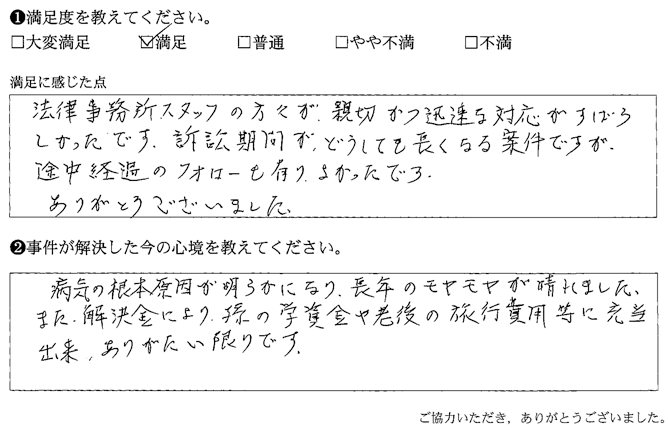 ❶満足度を教えてください。
□大変満足 ☑満足 □普通 □やや不満 □不満
満足に感じた点
法律事務所スタッフの方々が、親切かつ迅速な対応がすばら
しかったです。訴訟期間が、どうしても長くなる案件ですが、
途中経過のフォローも有り、よかったです。
ありがとうございました。
❷事件が解決した今の心境を教えてください。
病気の根本原因が明らかになり、長年のモヤモヤが晴れました。
また、解決金により、孫の学資金や老後の旅行費用等に充当
出来、ありがたい限りです。
ご協力いただき，ありがとうございました。